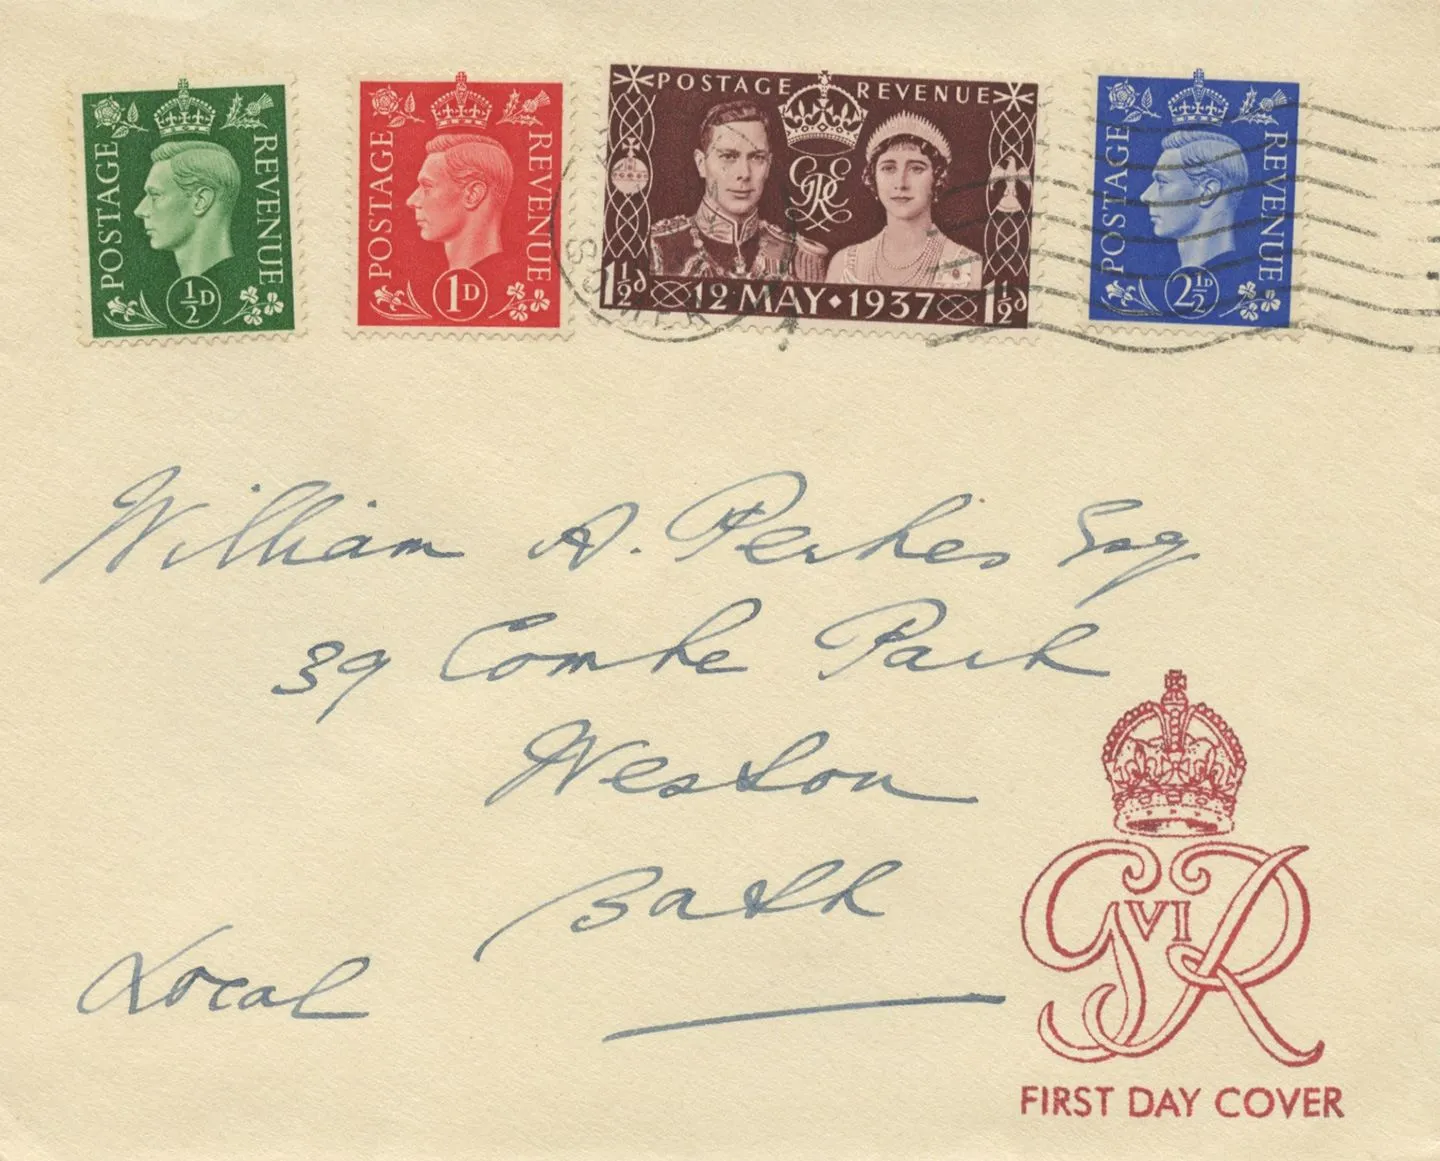 POSTAGE REVENUE ½D
POSTAGE REVENUE 1D
POSTAGE REVENUE
GRE
1½d 12 MAY · 1937 1½d
POSTAGE REVENUE 2½D
SOMER
William A. Perkes Esq
39 Combe Park
Weston
Bath
Local
GVIR
FIRST DAY COVER